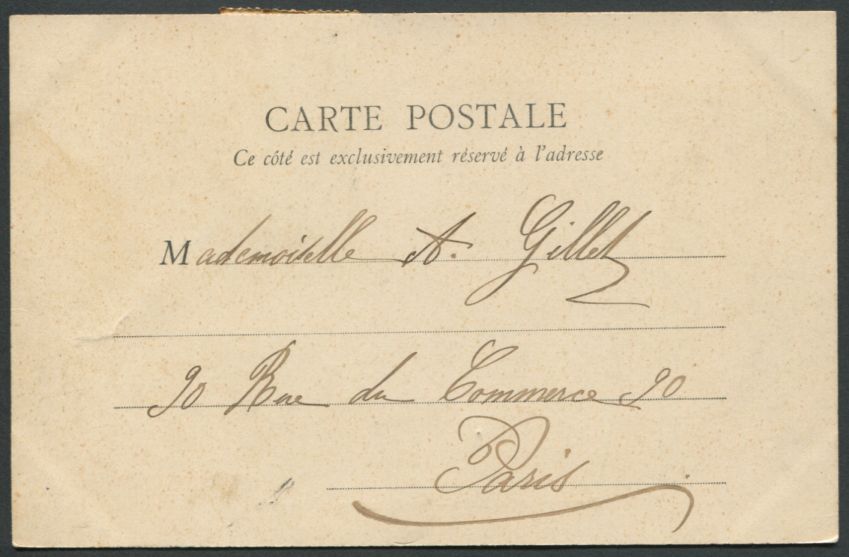 CARTE POSTALE
Ce côté est exclusivement réservé à l'adresse
Mademoiselle A. Gillet
90 Rue du Commerce 90
Paris